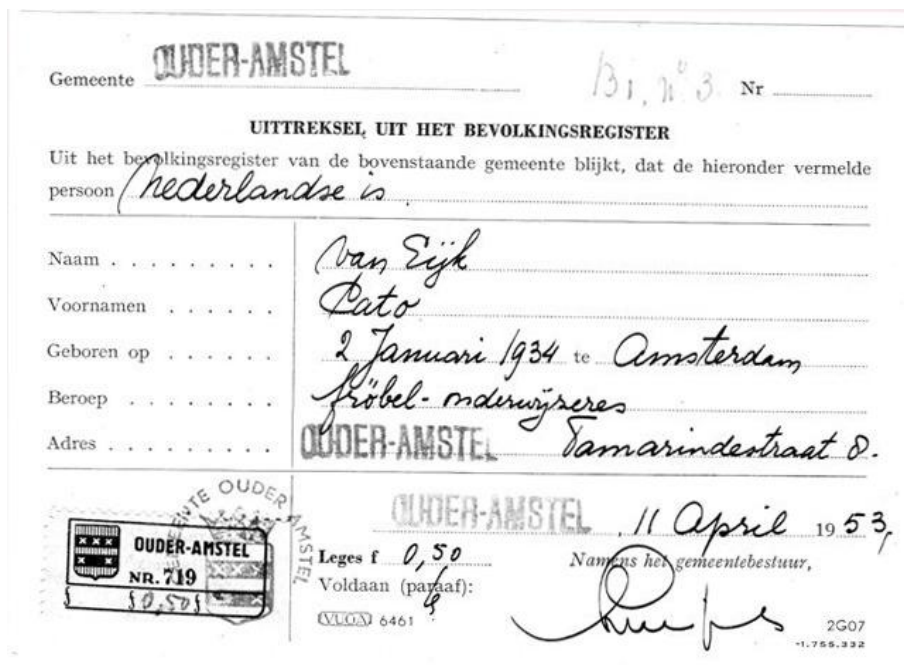 Gemeente OUDER-AMSTEL
Bi. no 3. Nr
UITTREKSEL UIT HET BEVOLKINGSREGISTER
Uit het bevolkingsregister van de bovenstaande gemeente blijkt, dat de hieronder vermelde
persoon nederlandse is.
Naam . . . . . . . . . van Eijk
Voornamen . . . . . . Cato
Geboren op . . . . . . 2 Januari 1934 te Amsterdam
Beroep . . . . . . . . fröbel-onderwijzeres
Adres . . . . . . . . . OUDER-AMSTEL Tamarindestraat 8.
GEMEENTE OUDER AMSTEL
OUDER-AMSTEL
NR. 719
f 0,50 f
OUDER-AMSTEL 11 April 1953,
Leges f 0,50
Namens het gemeentebestuur,
Voldaan (paraaf):
VUGA 6461
2G07
-1.755.332